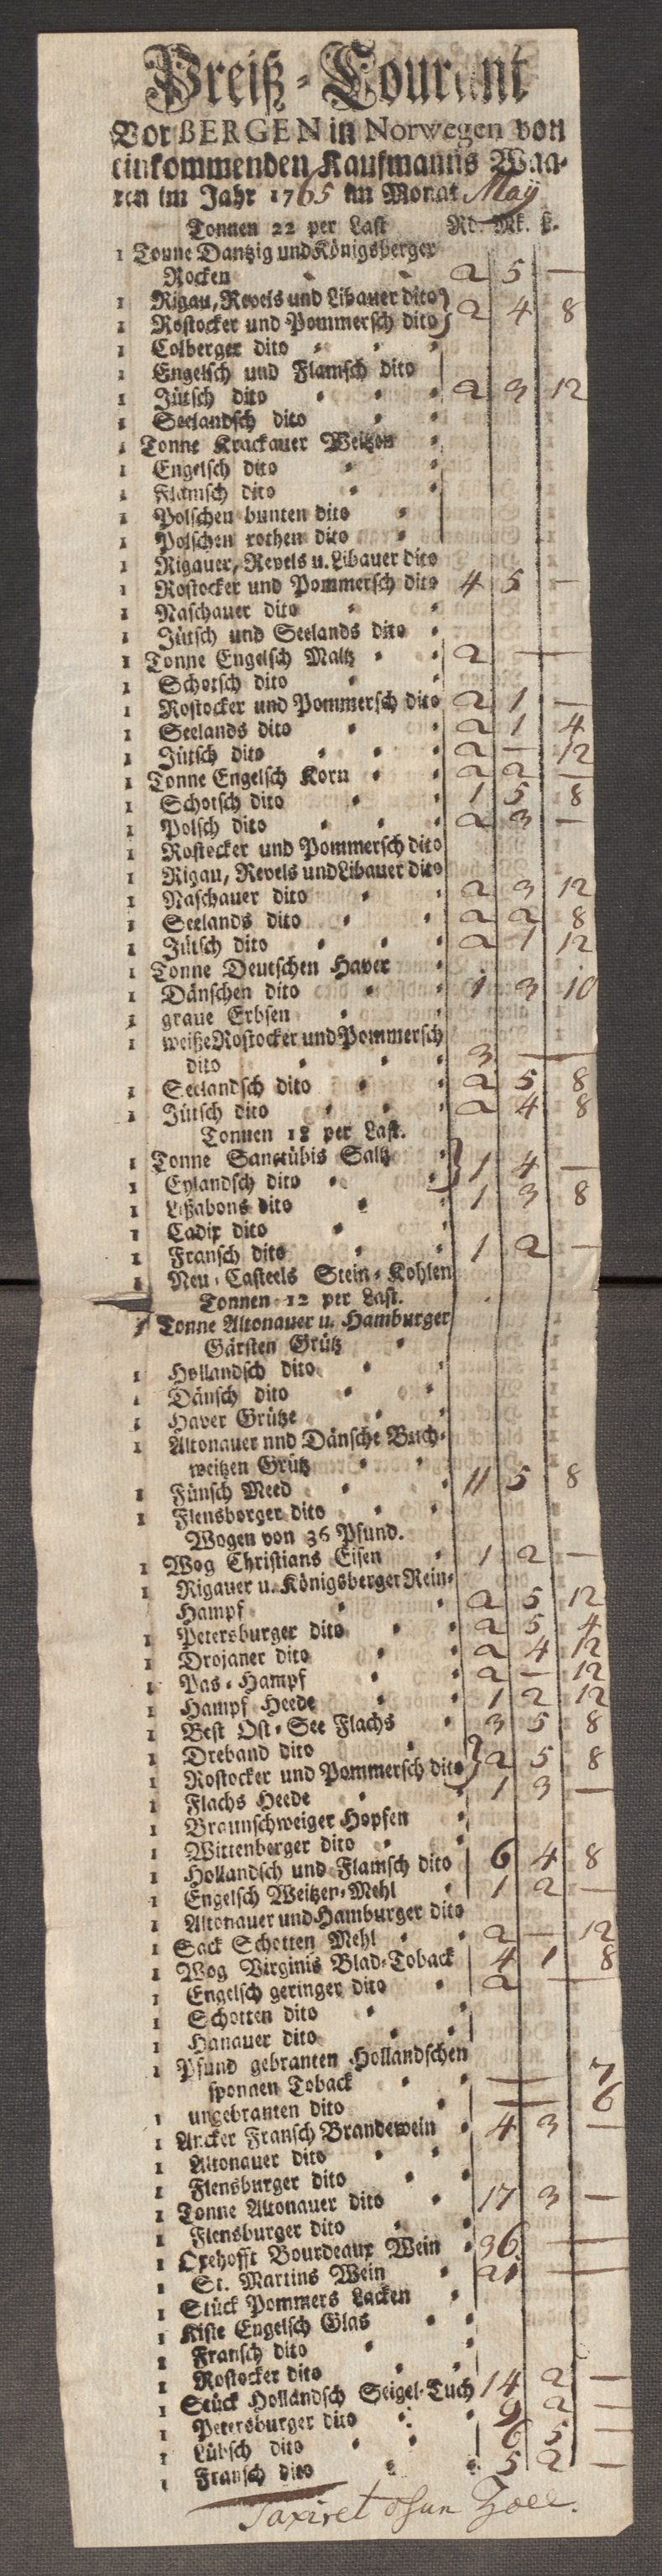 Preiß-Courant
Vor BERGEN in Norwegen von
einkommenden Kaufmanns Waa-
ren im Jahr 1765 im Monat May
Tonnen 22 per Last Rd. Mk. ß.
1 Tonne Dantzig und Königsberger
Rocken 2 5 —
1 Rigau, Revels und Libauer dito
1 Rostocker und Pommersch dito } 2 4 8
1 Colberger dito
1 Engelsch und Flamsch dito
1 Jütsch dito 2 3 12
1 Seelandsch dito
1 Tonne Krackauer Weitzen
1 Engelsch dito
1 Flamsch dito
1 Polschen bunten dito
1 Polschen rothen dito
1 Rigauer, Revels u. Libauer dito
1 Rostocker und Pommersch dito 4 5 —
1 Naschauer dito
1 Jütsch und Seelands dito
1 Tonne Engelsch Maltz 2 —
1 Schotsch dito
1 Rostocker und Pommersch dito 2 1 —
1 Seelands dito 2 1 4
1 Jütsch dito 2 — 12
1 Tonne Engelsch Korn 2 2 —
1 Schotsch dito 1 5 8
1 Polsch dito 2 3 —
1 Rostecker und Pommersch dito
1 Rigau, Revels und Libauer dito
1 Naschauer dito 2 3 12
1 Seelands dito 2 2 8
1 Jütsch dito 2 1 12
1 Tonne Deutschen Haver
1 Dänschen dito 1 3 10
1 graue Erbsen
1 weiße Rostocker und Pommersch
dito 3 —
1 Seelandsch dito 2 5 8
1 Jütsch dito 2 4 8
Tonnen 18 per Last.
1 Tonne Sanctübis Saltz
1 Eylandsch dito } 1 4 —
1 Lißabons dito 1 3 8
1 Cadix dito
1 Fransch dito 1 2 —
1 Neu-Casteels Stein-Kohlen
Tonnen 12 per Last.
1 Tonne Altonauer u. Hamburger
Gärsten Grütz
1 Hollandsch dito
1 Dänsch dito
1 Haver Grütze
1 Altonauer nnd Dänsche Buch-
weitzen Grütz
1 Fünsch Meed 11 5 8
1 Flensborger dito
Wogen von 36 Pfund.
1 Wog Christians Eisen 1 2 —
1 Rigauer u. Königsberger Rein-
Hampf 2 5 12
1 Petersburger dito 2 5 4
1 Drojaner dito 2 4 12
1 Pas-Hampf 2 — 12
1 Hampf Heede 1 2 12
1 Best Ost-See Flachs 3 5 8
1 Dreband dito
1 Rostocker und Pommersch dito } 2 5 8
1 Flachs Heede 1 3 —
1 Braunschweiger Hopfen
1 Wittenberger dito
1 Hollandsch und Flamsch dito 6 4 8
1 Engelsch Weitzen-Mehl 1 2 —
1 Altonauer und Hamburger dito
1 Sack Schotten Mehl 2 — 12
1 Wog Virginis Blad-Toback 4 1 8
1 Engelsch geringer dito 2 —
1 Schotten dito
1 Hanauer dito
1 Pfund gebranten Hollandschen
sponnen Toback — 7
1 ungebranten dito — 6
1 Ancker Fransch Brandewein 4 3 —
1 Altonauer dito
1 Flensburger dito
1 Tonne Altonauer dito 17 3 —
1 Flensburger dito
1 Oxehofft Bourdeaux Wein 36 —
1 St. Martins Wein 21 —
1 Stück Pommers Lacken
1 Kiste Engelsch Glas
1 Fransch dito
1 Rostocker dito
1 Stück Hollandsch Seigel-Tuch 14 2 —
1 Petersburger dito 9 2 —
1 Lübsch dito 6 5 —
1 Fransch dito 5 2 —
Taxiret Zoll.